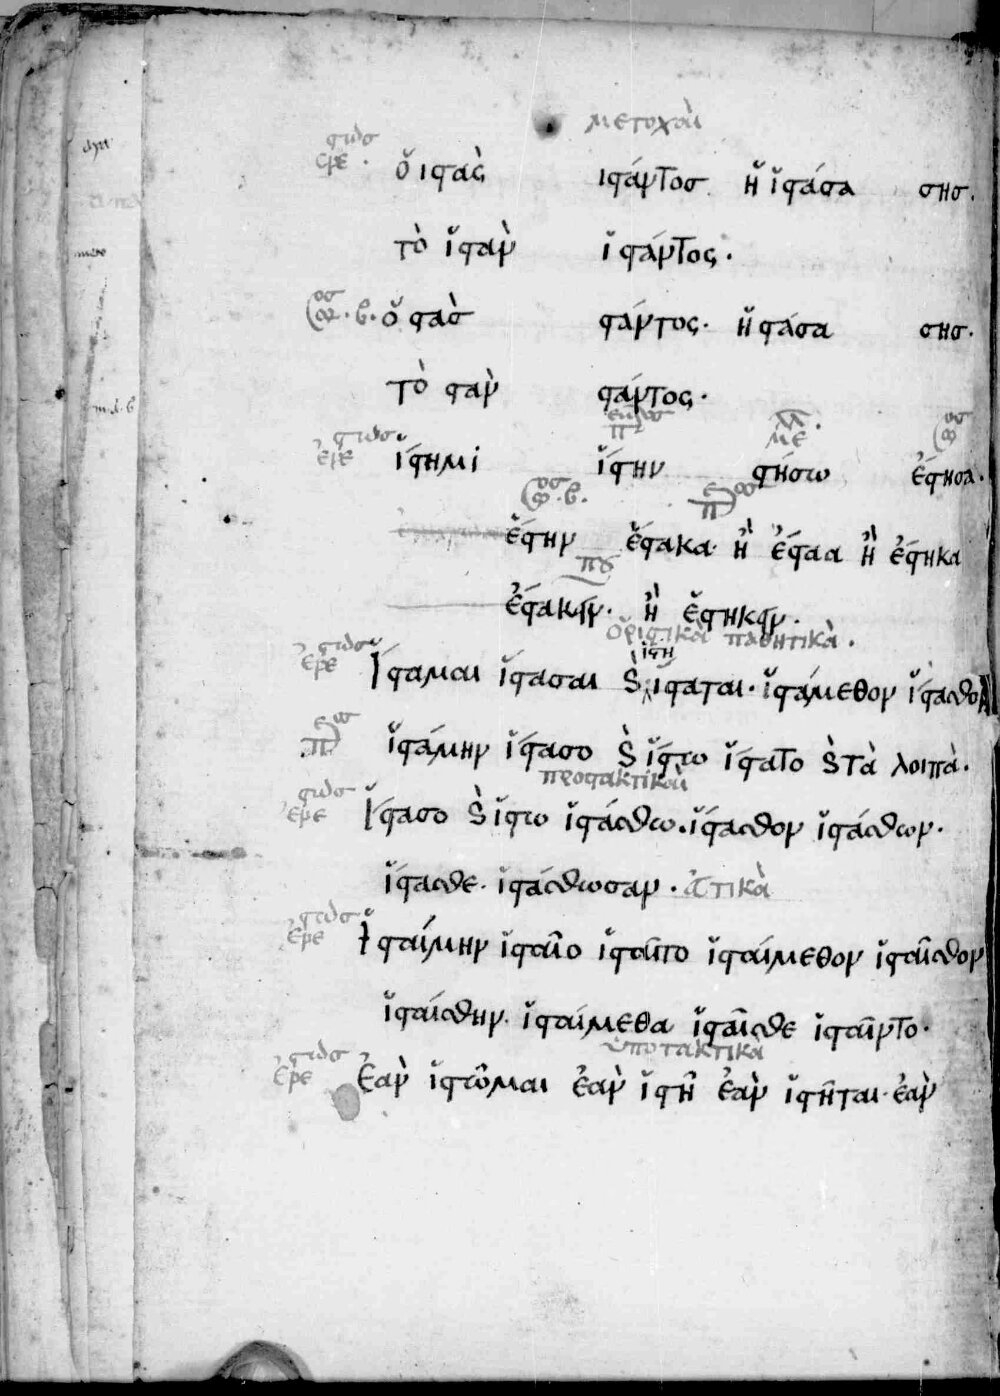 μετοχαὶ
ὁ ἱστὰς ἱστάντος ἡ ἱστᾶσα σης.
τὸ ἱστὰν ἱστάντος.
ὁ στὰς στάντος. ἡ στᾶσα σης.
τὸ στὰν στάντος.
ἵστημι ἵστην στήσω ἔστησα.
ἔστην ἔστακα. ἢ ἔσταα ἢ ἔστηκα
ἑστάκειν. ἢ ἑστήκειν.
ὁριστικὰ παθητικὰ.
ἵσταμαι ἵστασαι καὶ ἵστη ἵσταται. ἱστάμεθον ἵστασθον
ἱστάμην ἵστασο καὶ ἵστω ἵστατο καὶ τὰ λοιπὰ.
προστακτικαὶ
ἵστασο καὶ ἵστω ἱστάσθω. ἵστασθον ἱστάσθων.
ἵστασθε. ἱστάσθωσαν. εὐκτικὰ
ἱσταίμην ἱσταῖο ἱσταῖτο ἱσταίμεθον ἱσταῖσθον
ἱσταίσθην. ἱσταίμεθα ἱσταῖσθε ἱσταῖντο.
ὑποτακτικὰ
ἐὰν ἱστῶμαι ἐὰν ἱστῇ ἐὰν ἱστῆται. ἐὰν